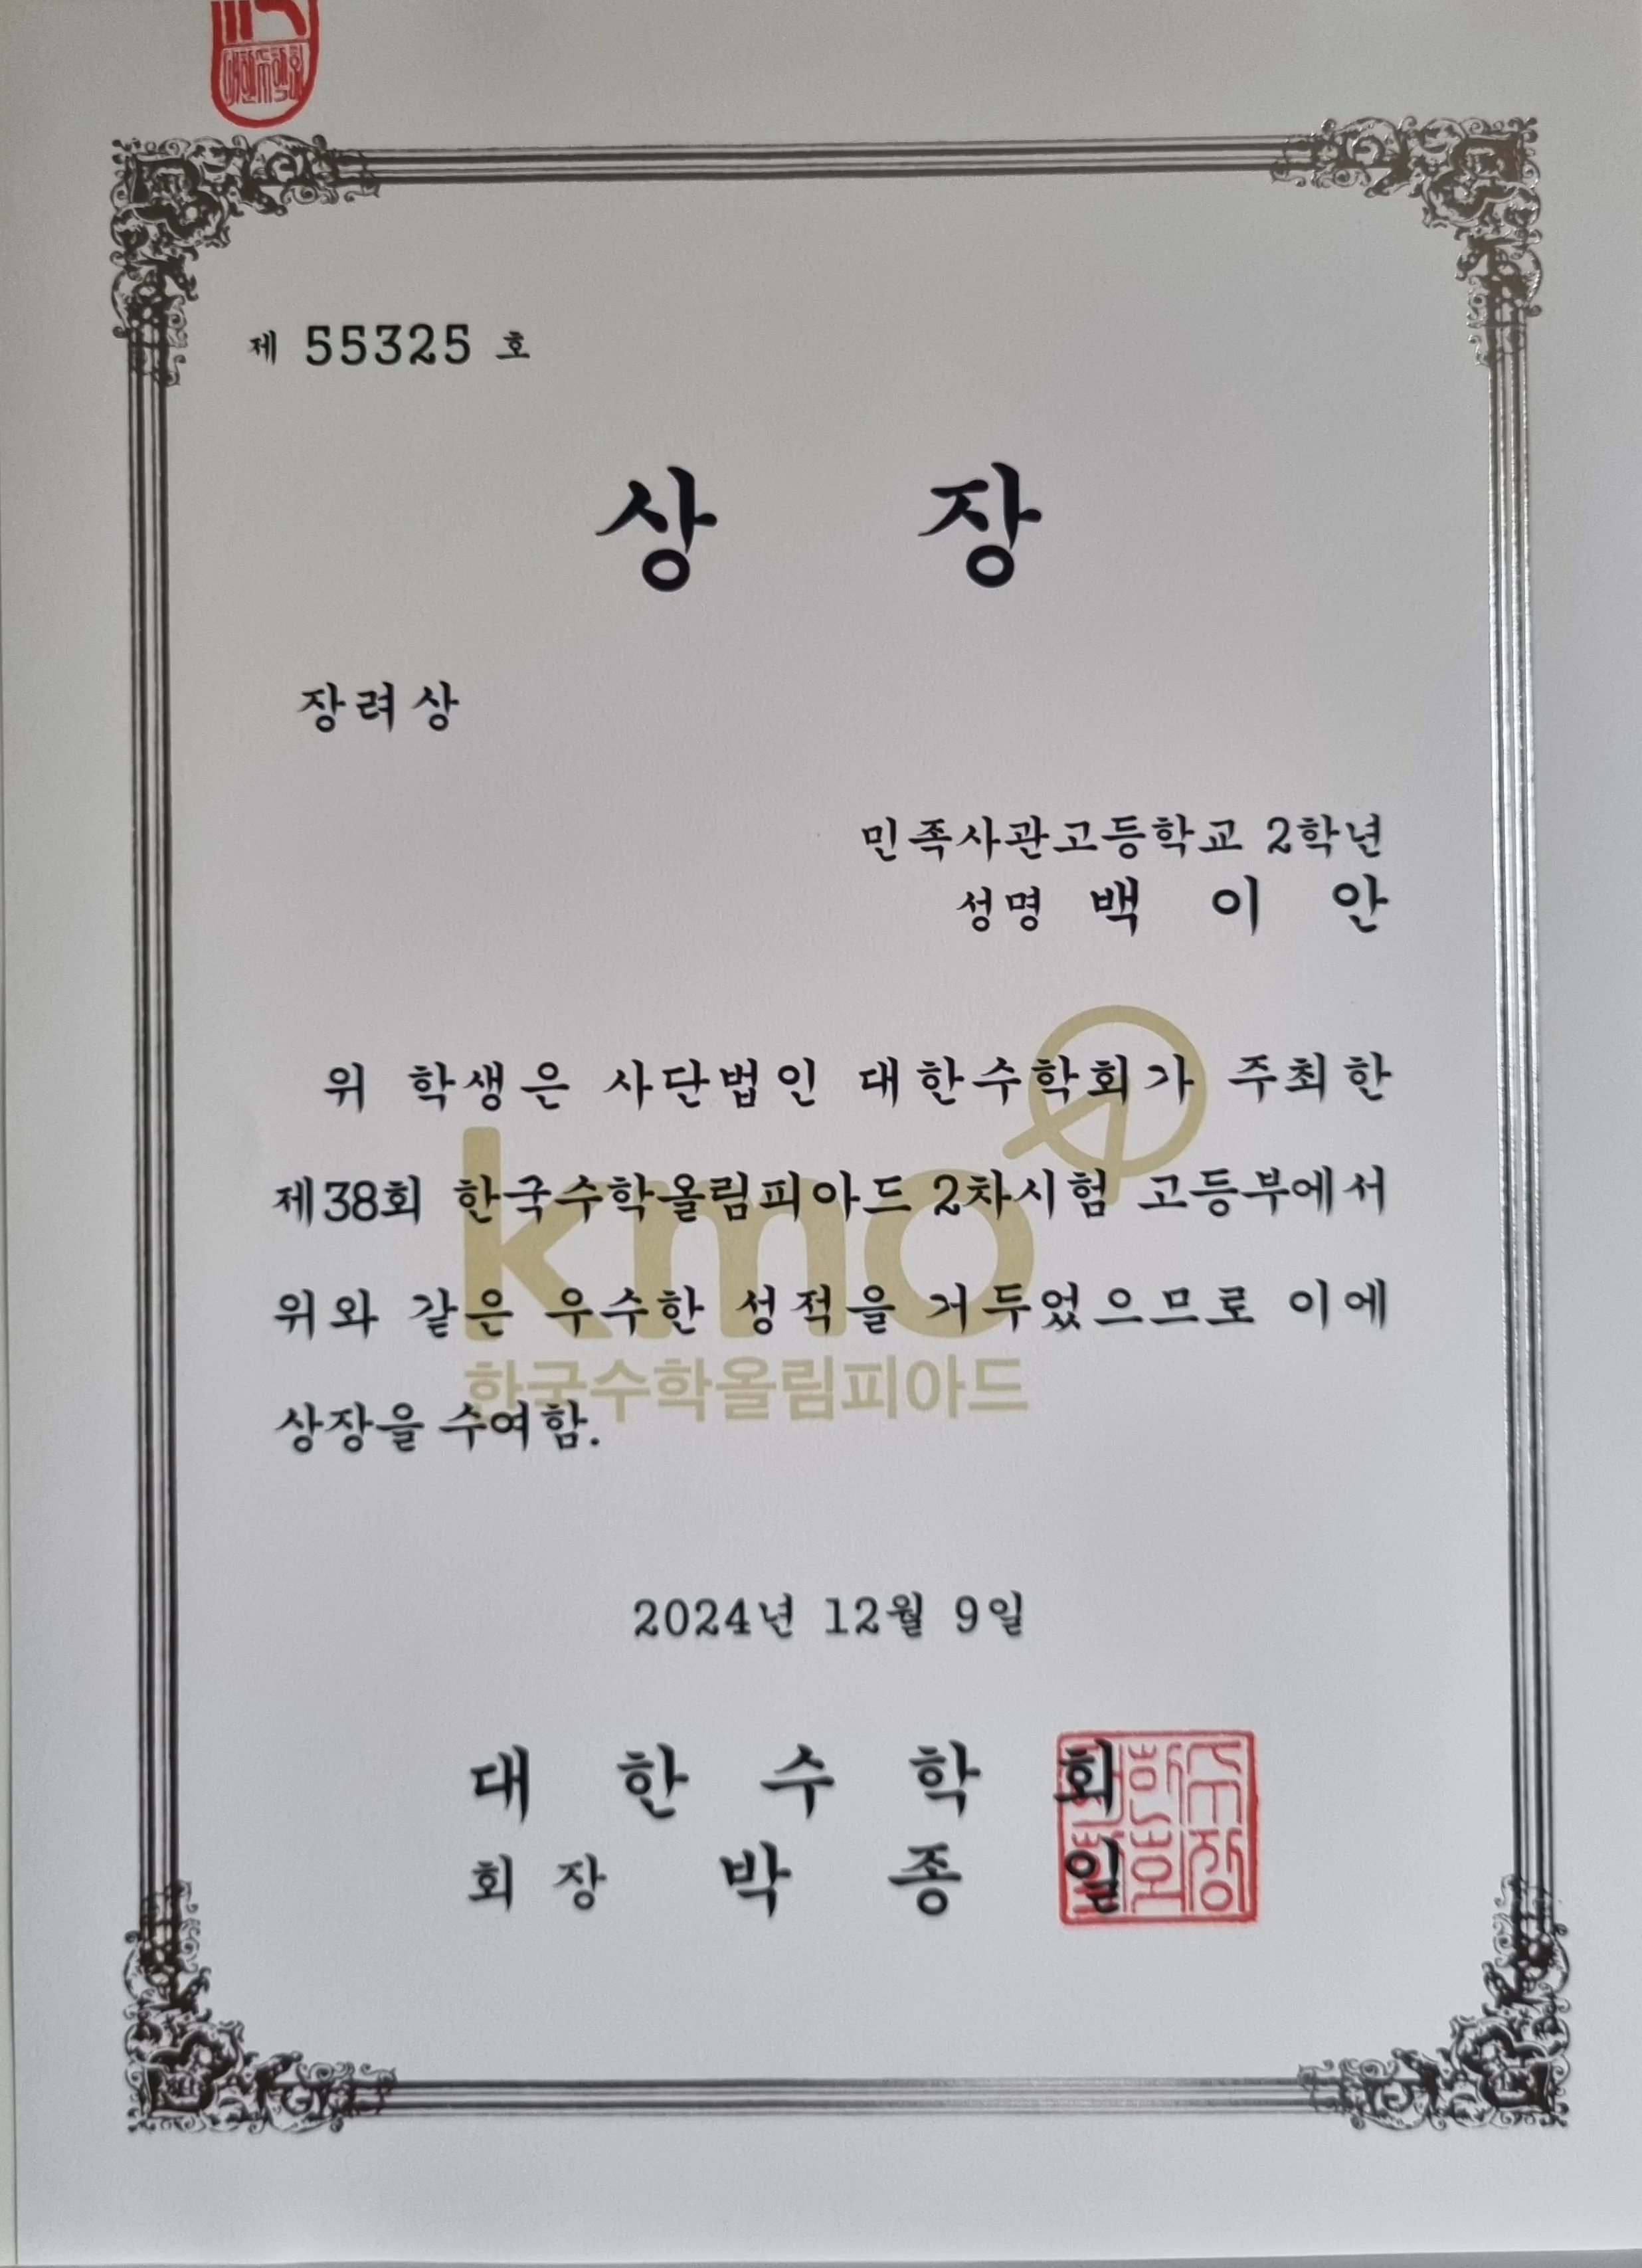 제 55325 호
상 장
장려상
민족사관고등학교 2학년
성명 백 이 안
위 학생은 사단법인 대한수학회가 주최한
제38회 한국수학올림피아드 2차시험 고등부에서
위와 같은 우수한 성적을 거두었으므로 이에
상장을 수여함.
kmo
한국수학올림피아드
2024년 12월 9일
대 한 수 학 회
회 장 박 종 일